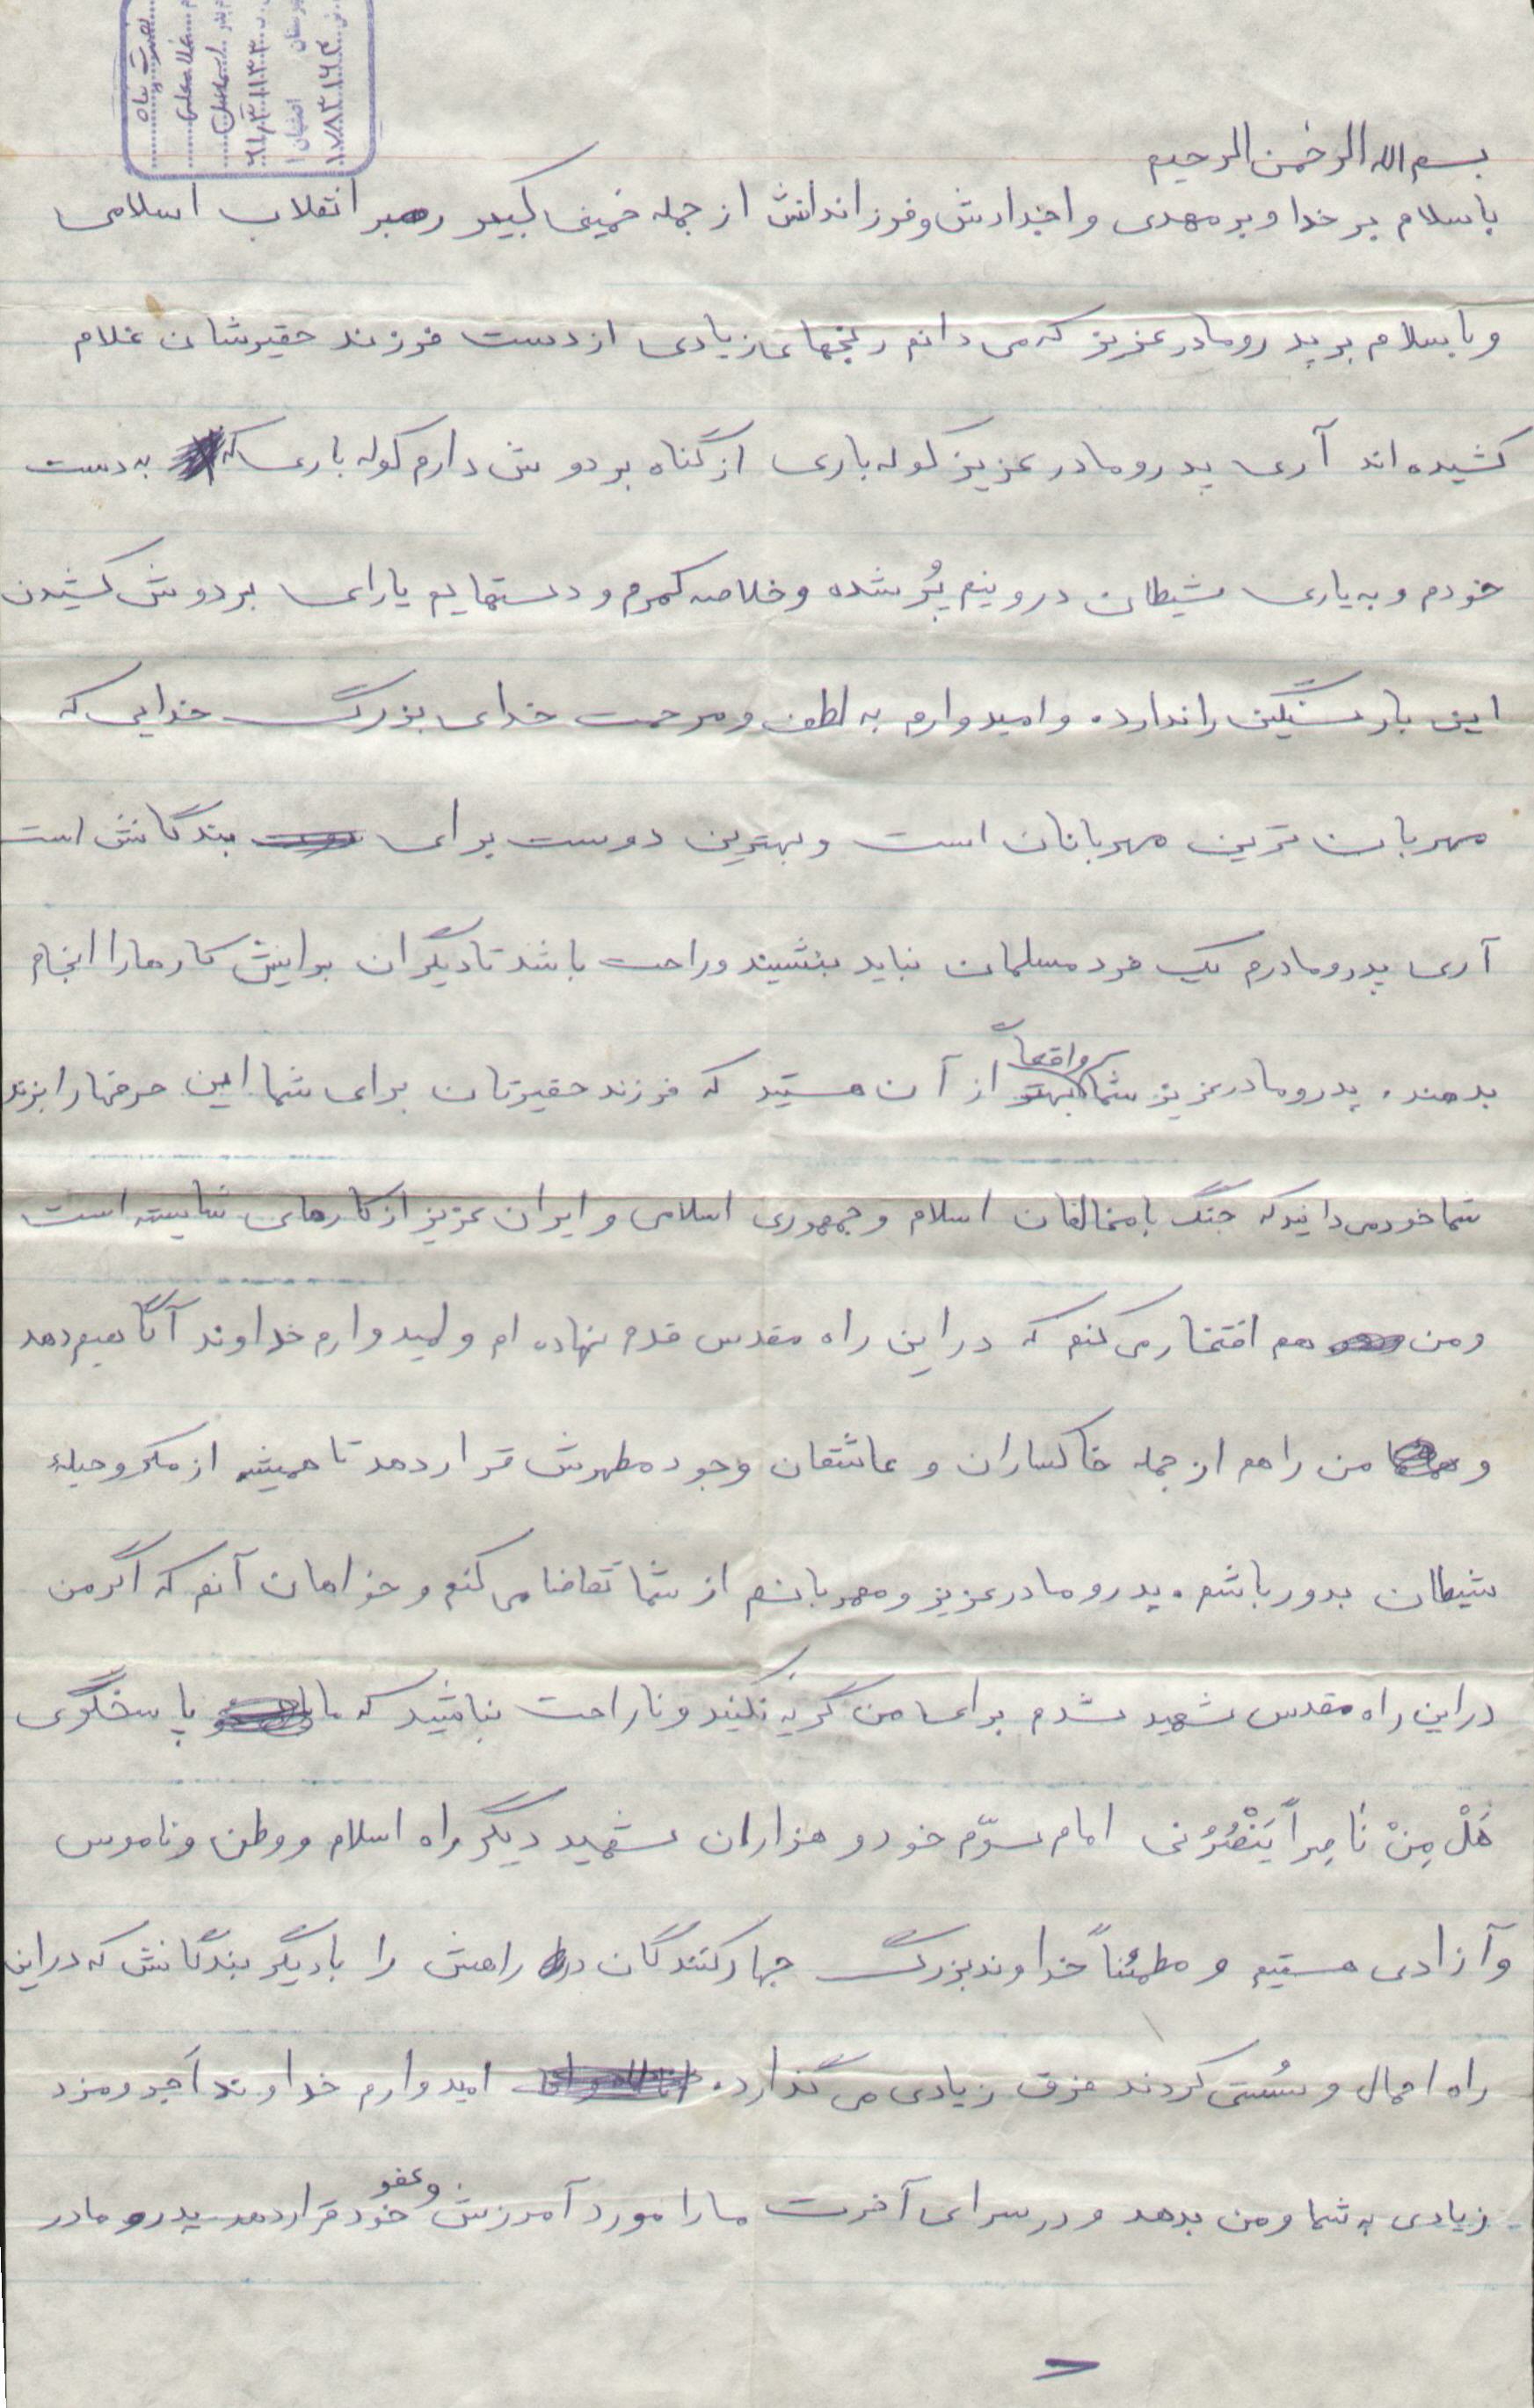 نصرت پناه
غلامعلی
اسماعیل
۶۱٫۳٫۱۱۳۳
اصفهان
۱۷۸۳۱۶۴
بسم الله الرحمن الرحیم
با سلام بر خدا و بر مهدی و اجدادش و فرزاندانش از جمله خمینی کبیر رهبر انقلاب اسلامی
و با سلام بر پدر و مادر عزیز که می دانم رنجهای زیادی از دست فرزند حقیرشان غلام
کشیده اند آری پدر و مادر عزیز کوله باری از گناه بر دوش دارم کوله باری که به دست
خودم و به یاری شیطان درونیم پُر شده و خلاصه کمرم و دستهایم یارای بر دوش کشیدن
این بار سنگین را ندارد. و امیدوارم به لطف و مرحمت خدای بزرگ خدایی که
مهربان ترین مهربانان است و بهترین دوست برای بندگانش است
آری پدر و مادرم یک فرد مسلمان نباید بنشیند و راحت باشد تا دیگران برایش کارها را انجام
بدهند. پدر و مادر عزیز شما واقعاً بهتر از آن هستید که فرزند حقیرتان برای شما این حرفها را بزند
شما خود می دانید که جنگ با مخالفان اسلام و جمهوری اسلامی و ایران عزیز از کارهای شایسته است
و من هم افتخار می کنم که در این راه مقدس قدم نهاده ام و امیدوارم خداوند آگاهیم دهد
و من را هم از جمله خاکساران و عاشقان وجود مطهرش قرار دهد تا همیشه از مکر و حیلهٔ
شیطان بدور باشم. پدر و مادر عزیز و مهربانم از شما تقاضا می کنم و خواهان آنم که اگر من
در این راه مقدس شهید شدم برای من گریه نکنید و ناراحت نباشید که ما پاسخگوی
هَلْ مِنْ نٰاصِراً یَنْصُرُنی امام سوّم خود و هزاران شهید دیگر راه اسلام و وطن و ناموس
و آزادی هستیم و مطمئناً خداوند بزرگ جهاد کنندگان در راهش را با دیگر بندگانش که در این
راه اهمال و سُستی کردند فرق زیادی می گذارد. امیدوارم خداوند اَجر و مزد
زیادی به شما و من بدهد و در سرای آخرت ما را مورد آمرزش و عفو خود قرار دهد پدر و مادر